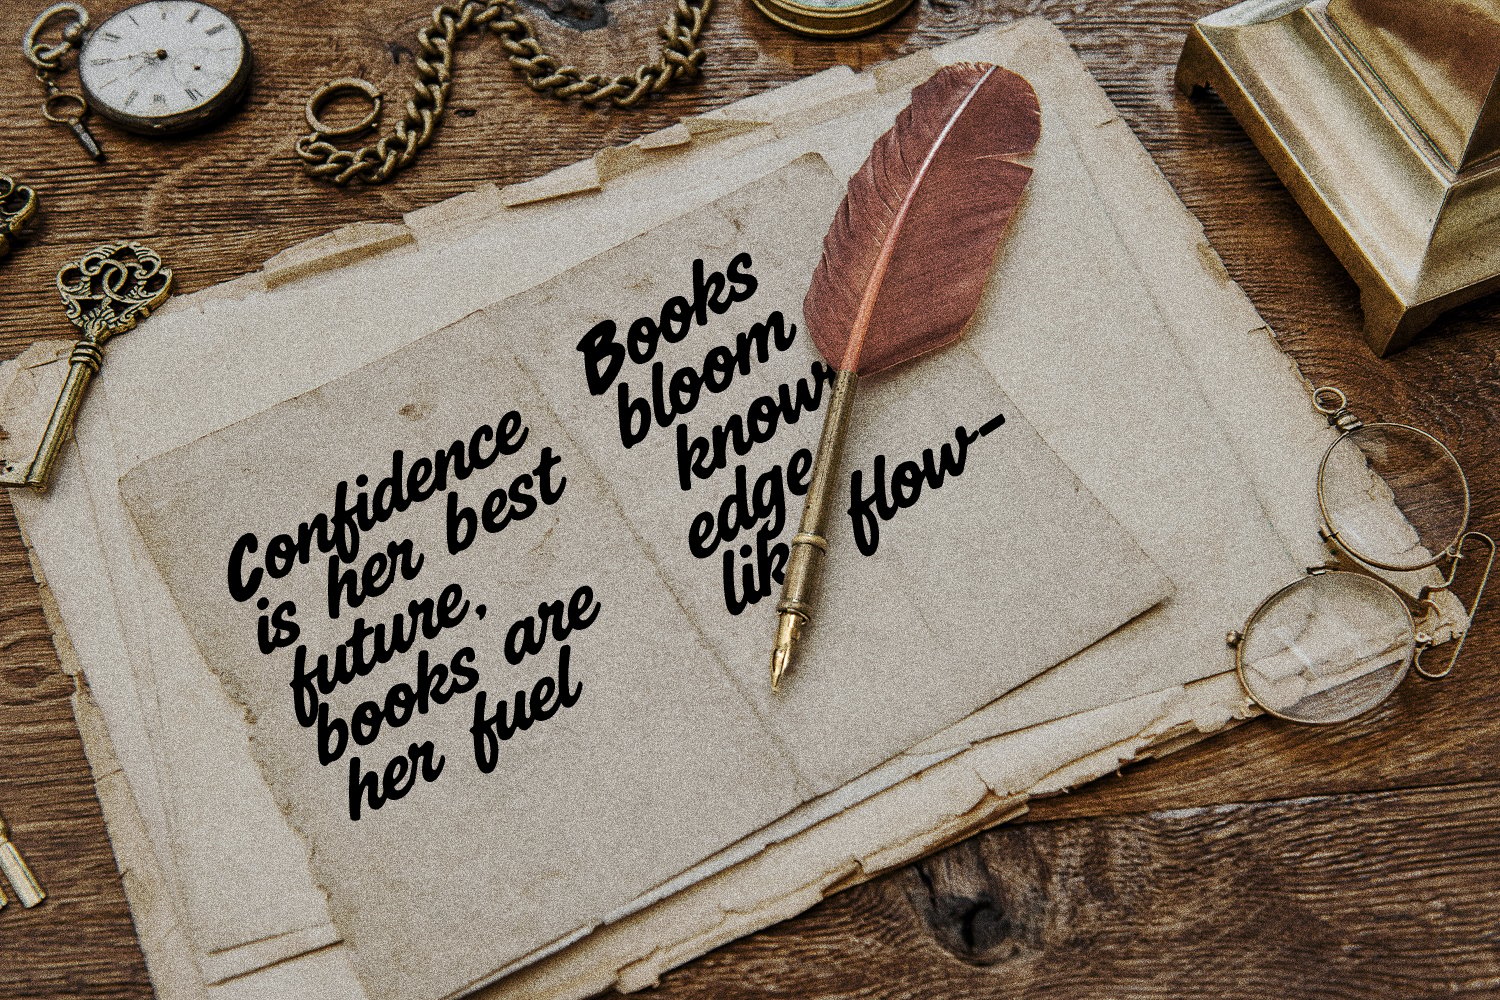 Confidence
is her best
future,
books are
her fuel
Books
bloom
know
edge
flow-